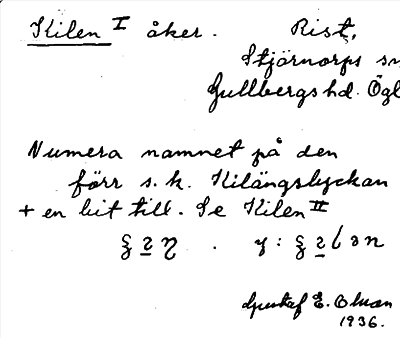 Kilen I åker. Rist,
Stjärnorps sn
Gullbergs hd. Ögl
Numera namnet på den
förr s.k. Kilängslyckan
+ en bit till. Se Kilen II
Gustaf E. Olsson
1936.